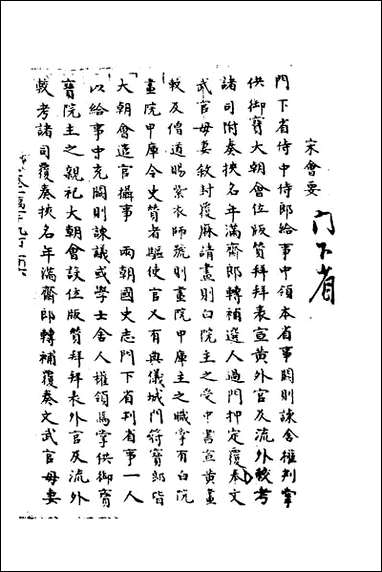 宋會要
門下省
門下省侍中侍郎給事中領本省事闕則諫舍權判掌
供御寶大朝會位版贊拜拜表宣黃外官及流外較考
諸司附奏挾名年滿齋郎轉補選人過門押定覆奏文
武官母妻敘封覆麻請畫則白院主之受中書宣黃畫
敕及僧道賜紫衣師號則畫院甲庫主之職掌有白院
畫院甲庫令史贊者驅使官又有典儀城門符寶郎皆
大朝會造官攝事 兩朝國史志門下省判省事一人
以給事中充闕則諫議或學士舍人權領焉掌供御寶
寶院主之親祀大朝會設位版贊拜拜表外官及流外
較考諸司覆奏挾名年滿齋郎轉補覆奏文武官母妻